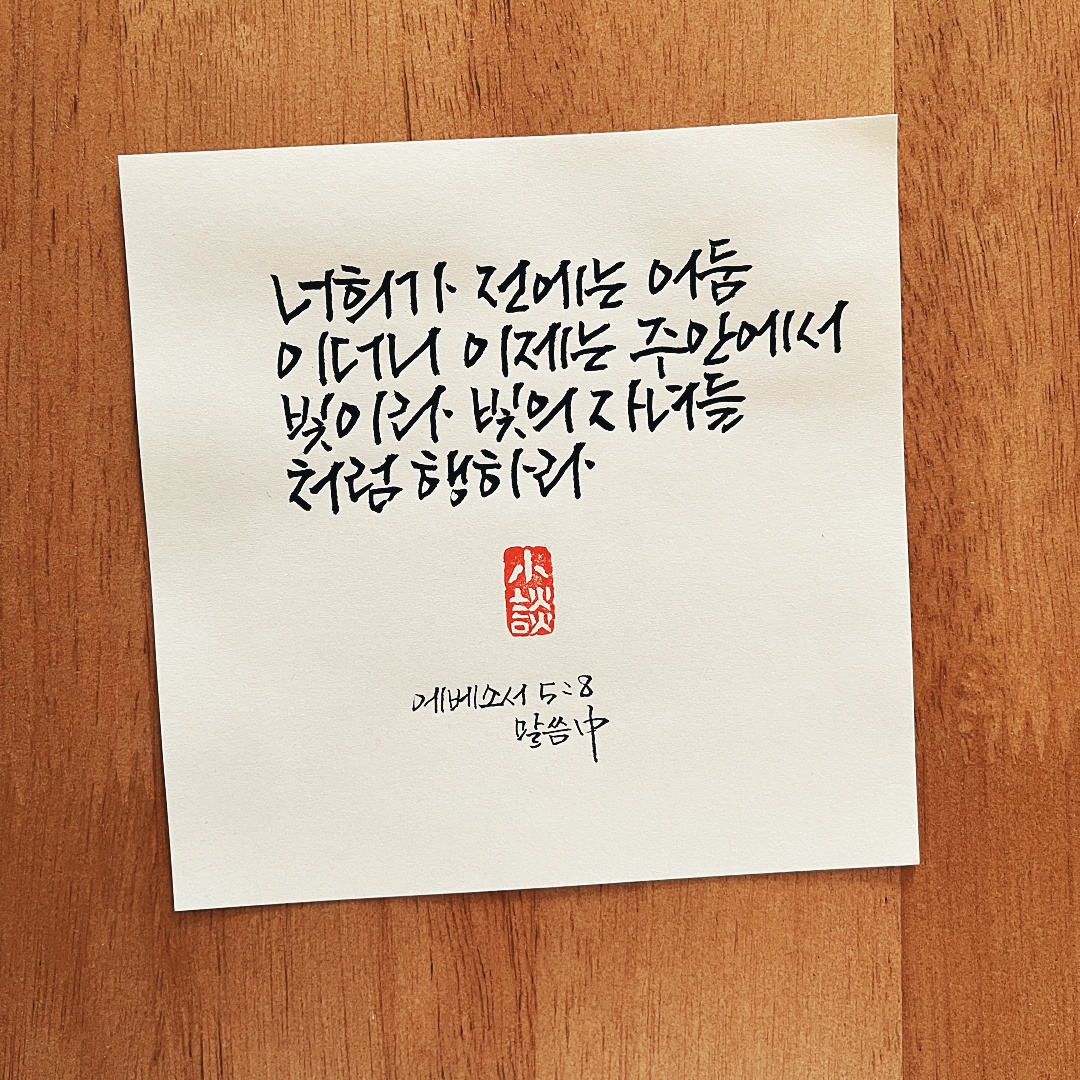 너희가 전에는 어둠
이더니 이제는 주안에서
빛이라 빛의 자녀들
처럼 행하라
小
談
에베소서 5:8
말씀中